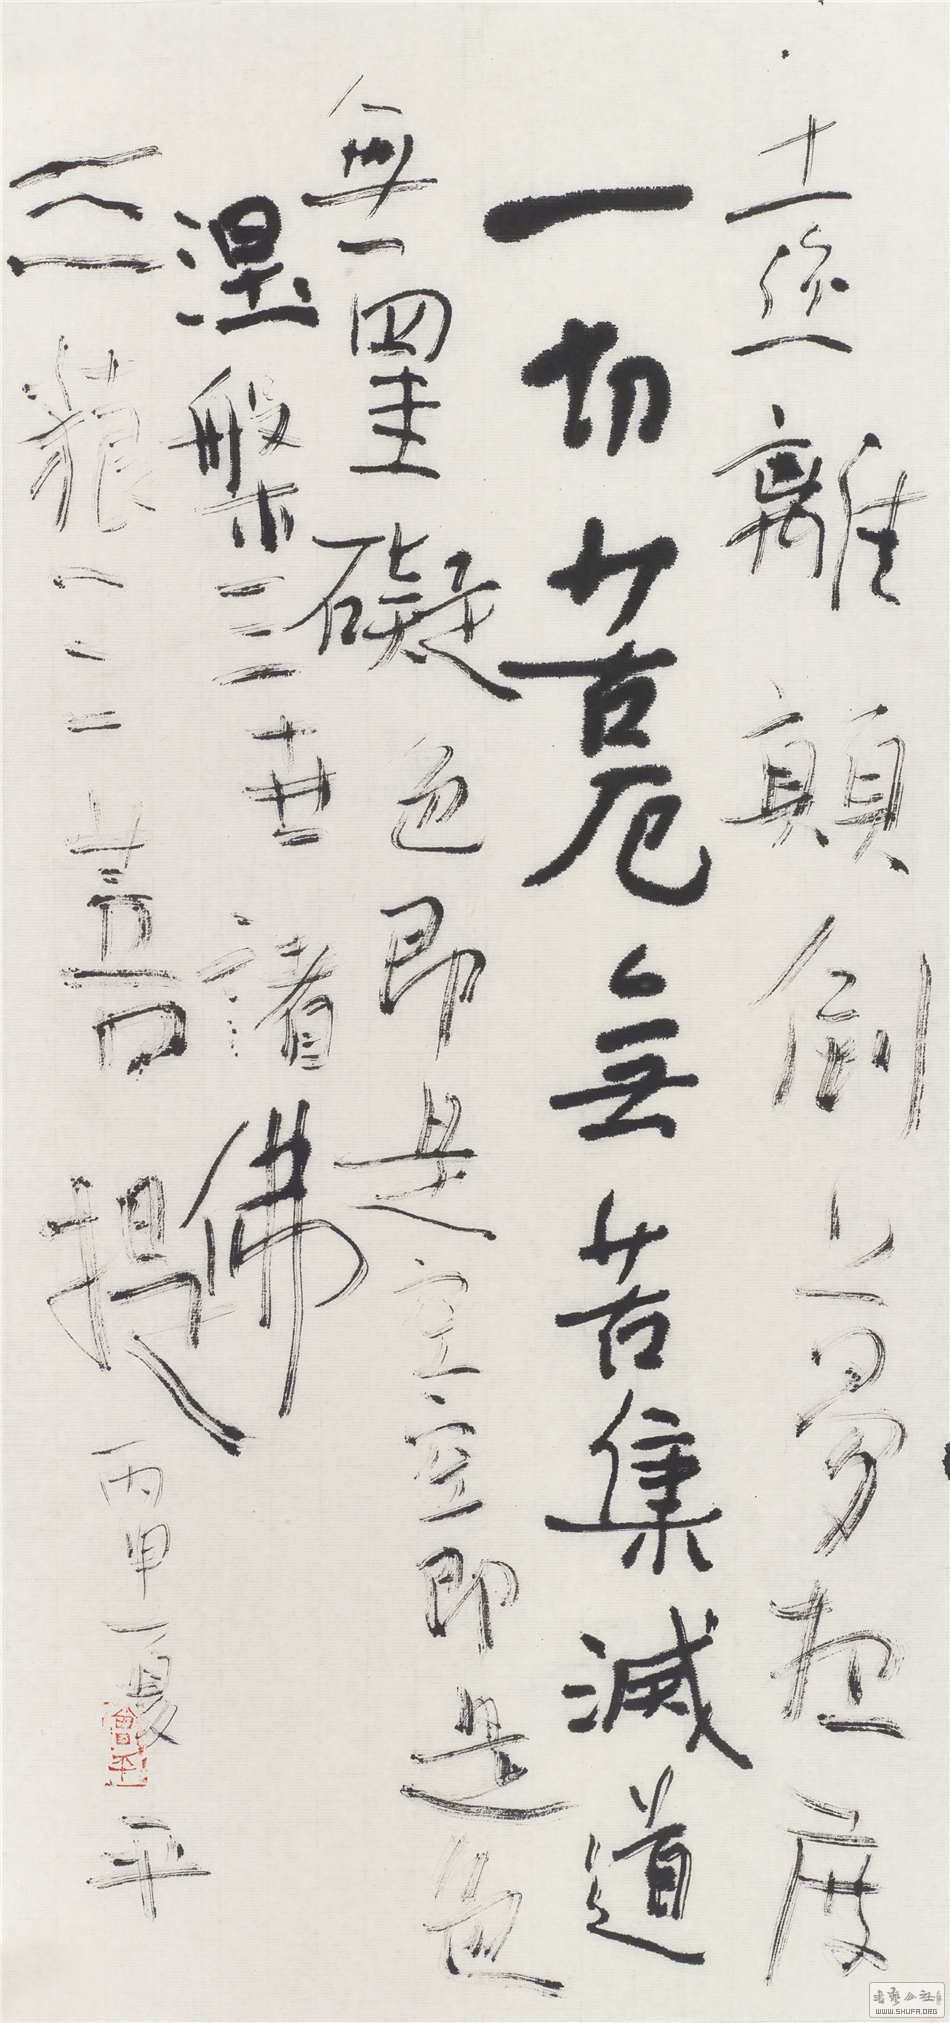 遠離顛倒夢想度
一切苦厄無苦集滅道
無罣礙色即是空空即是色
涅槃三世諸佛
三藐三菩提 丙申夏 平
WWW.SHUFA.ORG